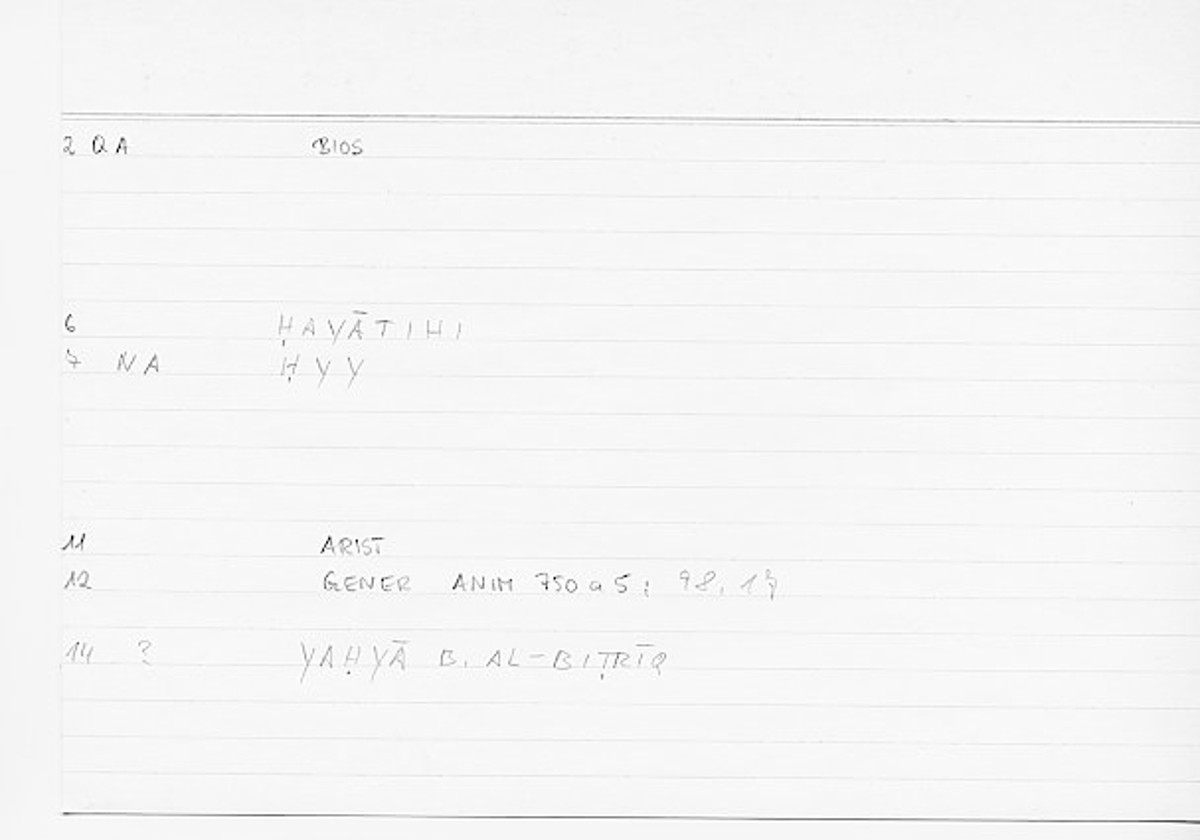 2 QA BIOS
6 ḤAYĀTIHI
7 NA ḤYY
11 ARIST
12 GENER ANIM 750 a 5; 98, 17
14 ? YAḤYĀ B. AL-BIṬRĪQ